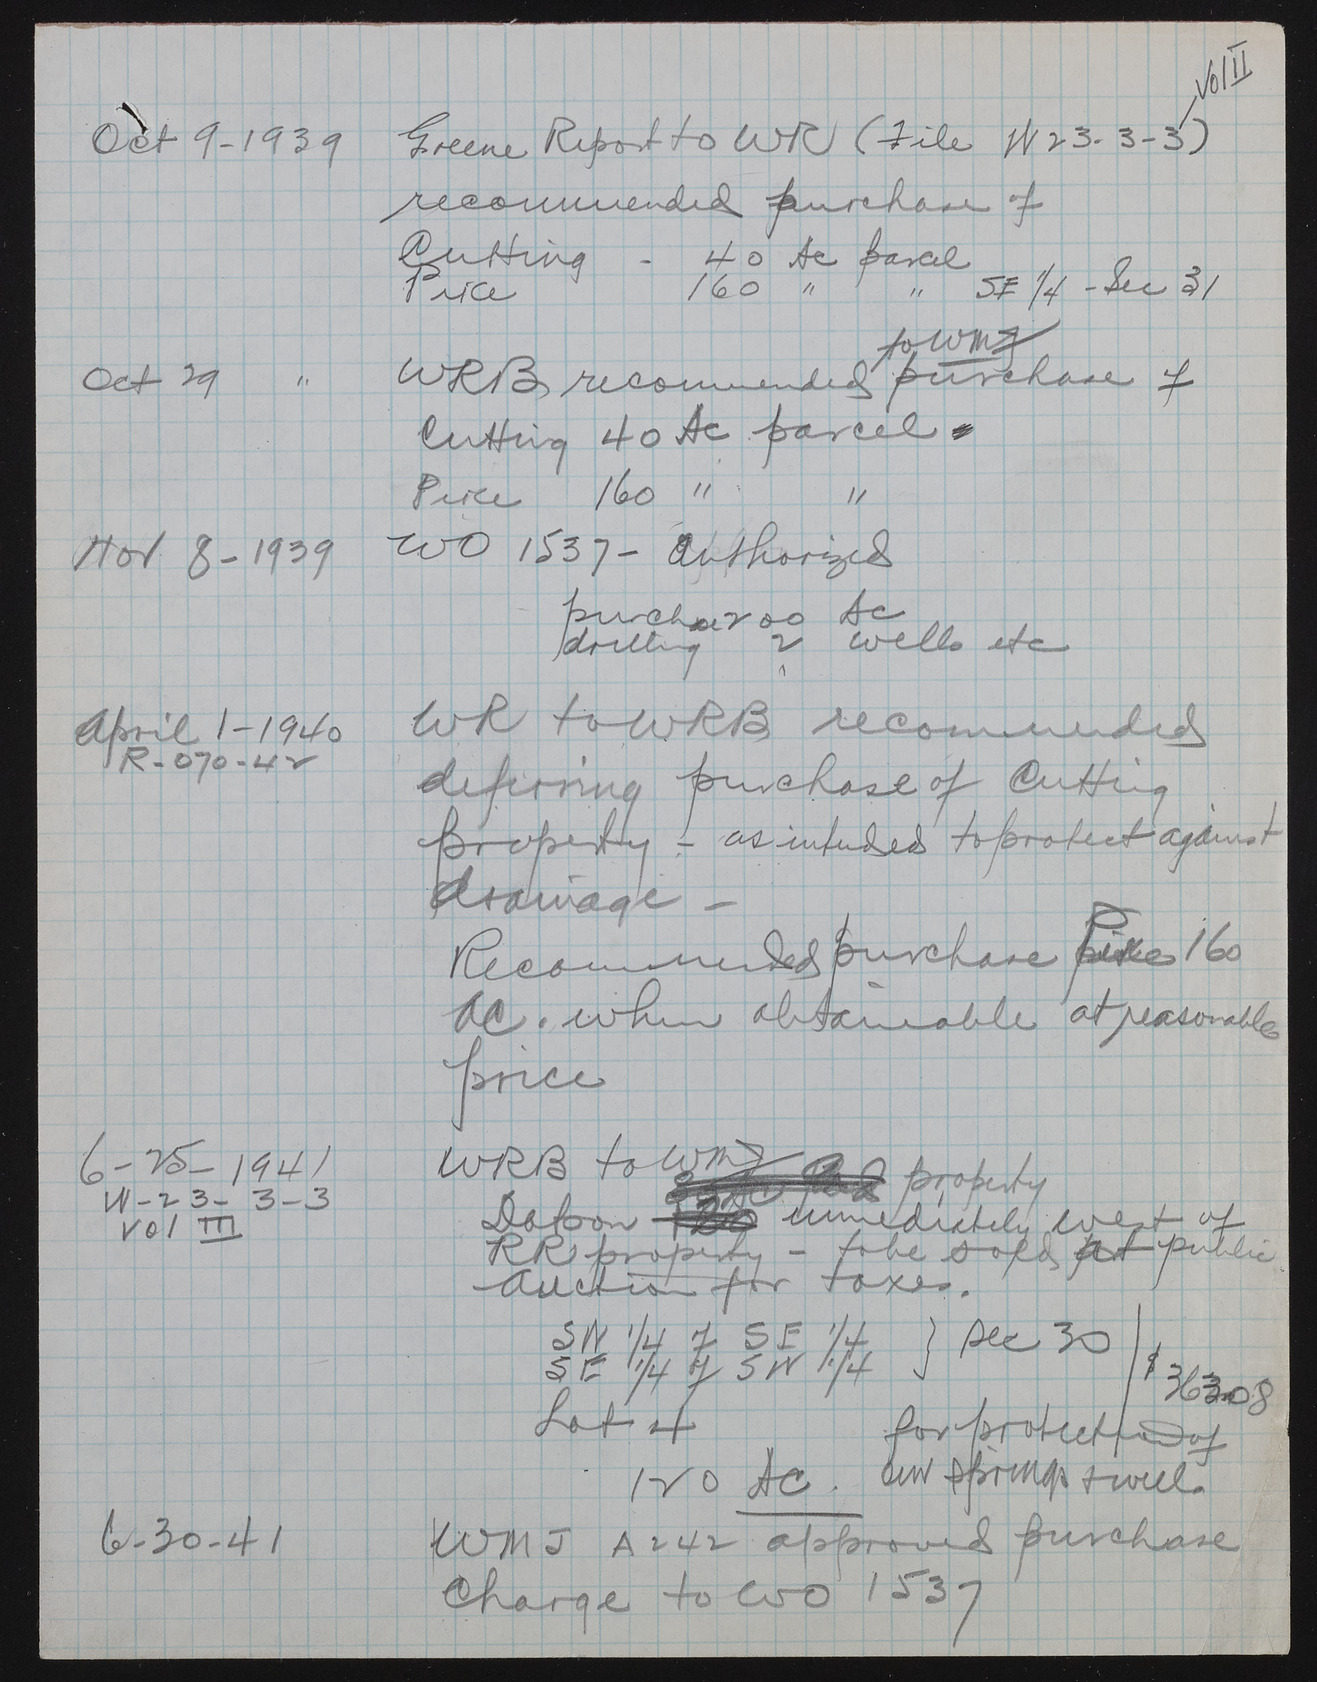 Vol II
Oct 9-1939 Greene Report to WR (File W23-3-3)
recommended purchase of
Cutting - 40 Ac parcel
Price 160 " " SE 1/4 - Sec 31
to WMJ
Oct 29 " WRB recommended purchase of
Cutting 40 Ac parcel
Price 160 " "
Nov 8-1939 WO 1537- Authorized
purchase 200 Ac
drilling 2 wells etc
April 1-1940 WR to WRB recommended
R-070-42
deferring purchase of Cutting
property - as intended to protect against
drainage -
Recommended purchase Price 160
Ac. when obtainable at reasonable
price
6-25-1941 WRB to WMJ
W-23-3-3 property
Vol III Dobson immediately west of
RR property - to be sold at public
Auction for taxes.
SW 1/4 of SE 1/4 } Sec 30
SE 1/4 of SW 1/4
$363.08
Lot 4 for protection of
120 Ac. our springs & well.
6-30-41 WMJ A242 approved purchase
Charge to WO 1537